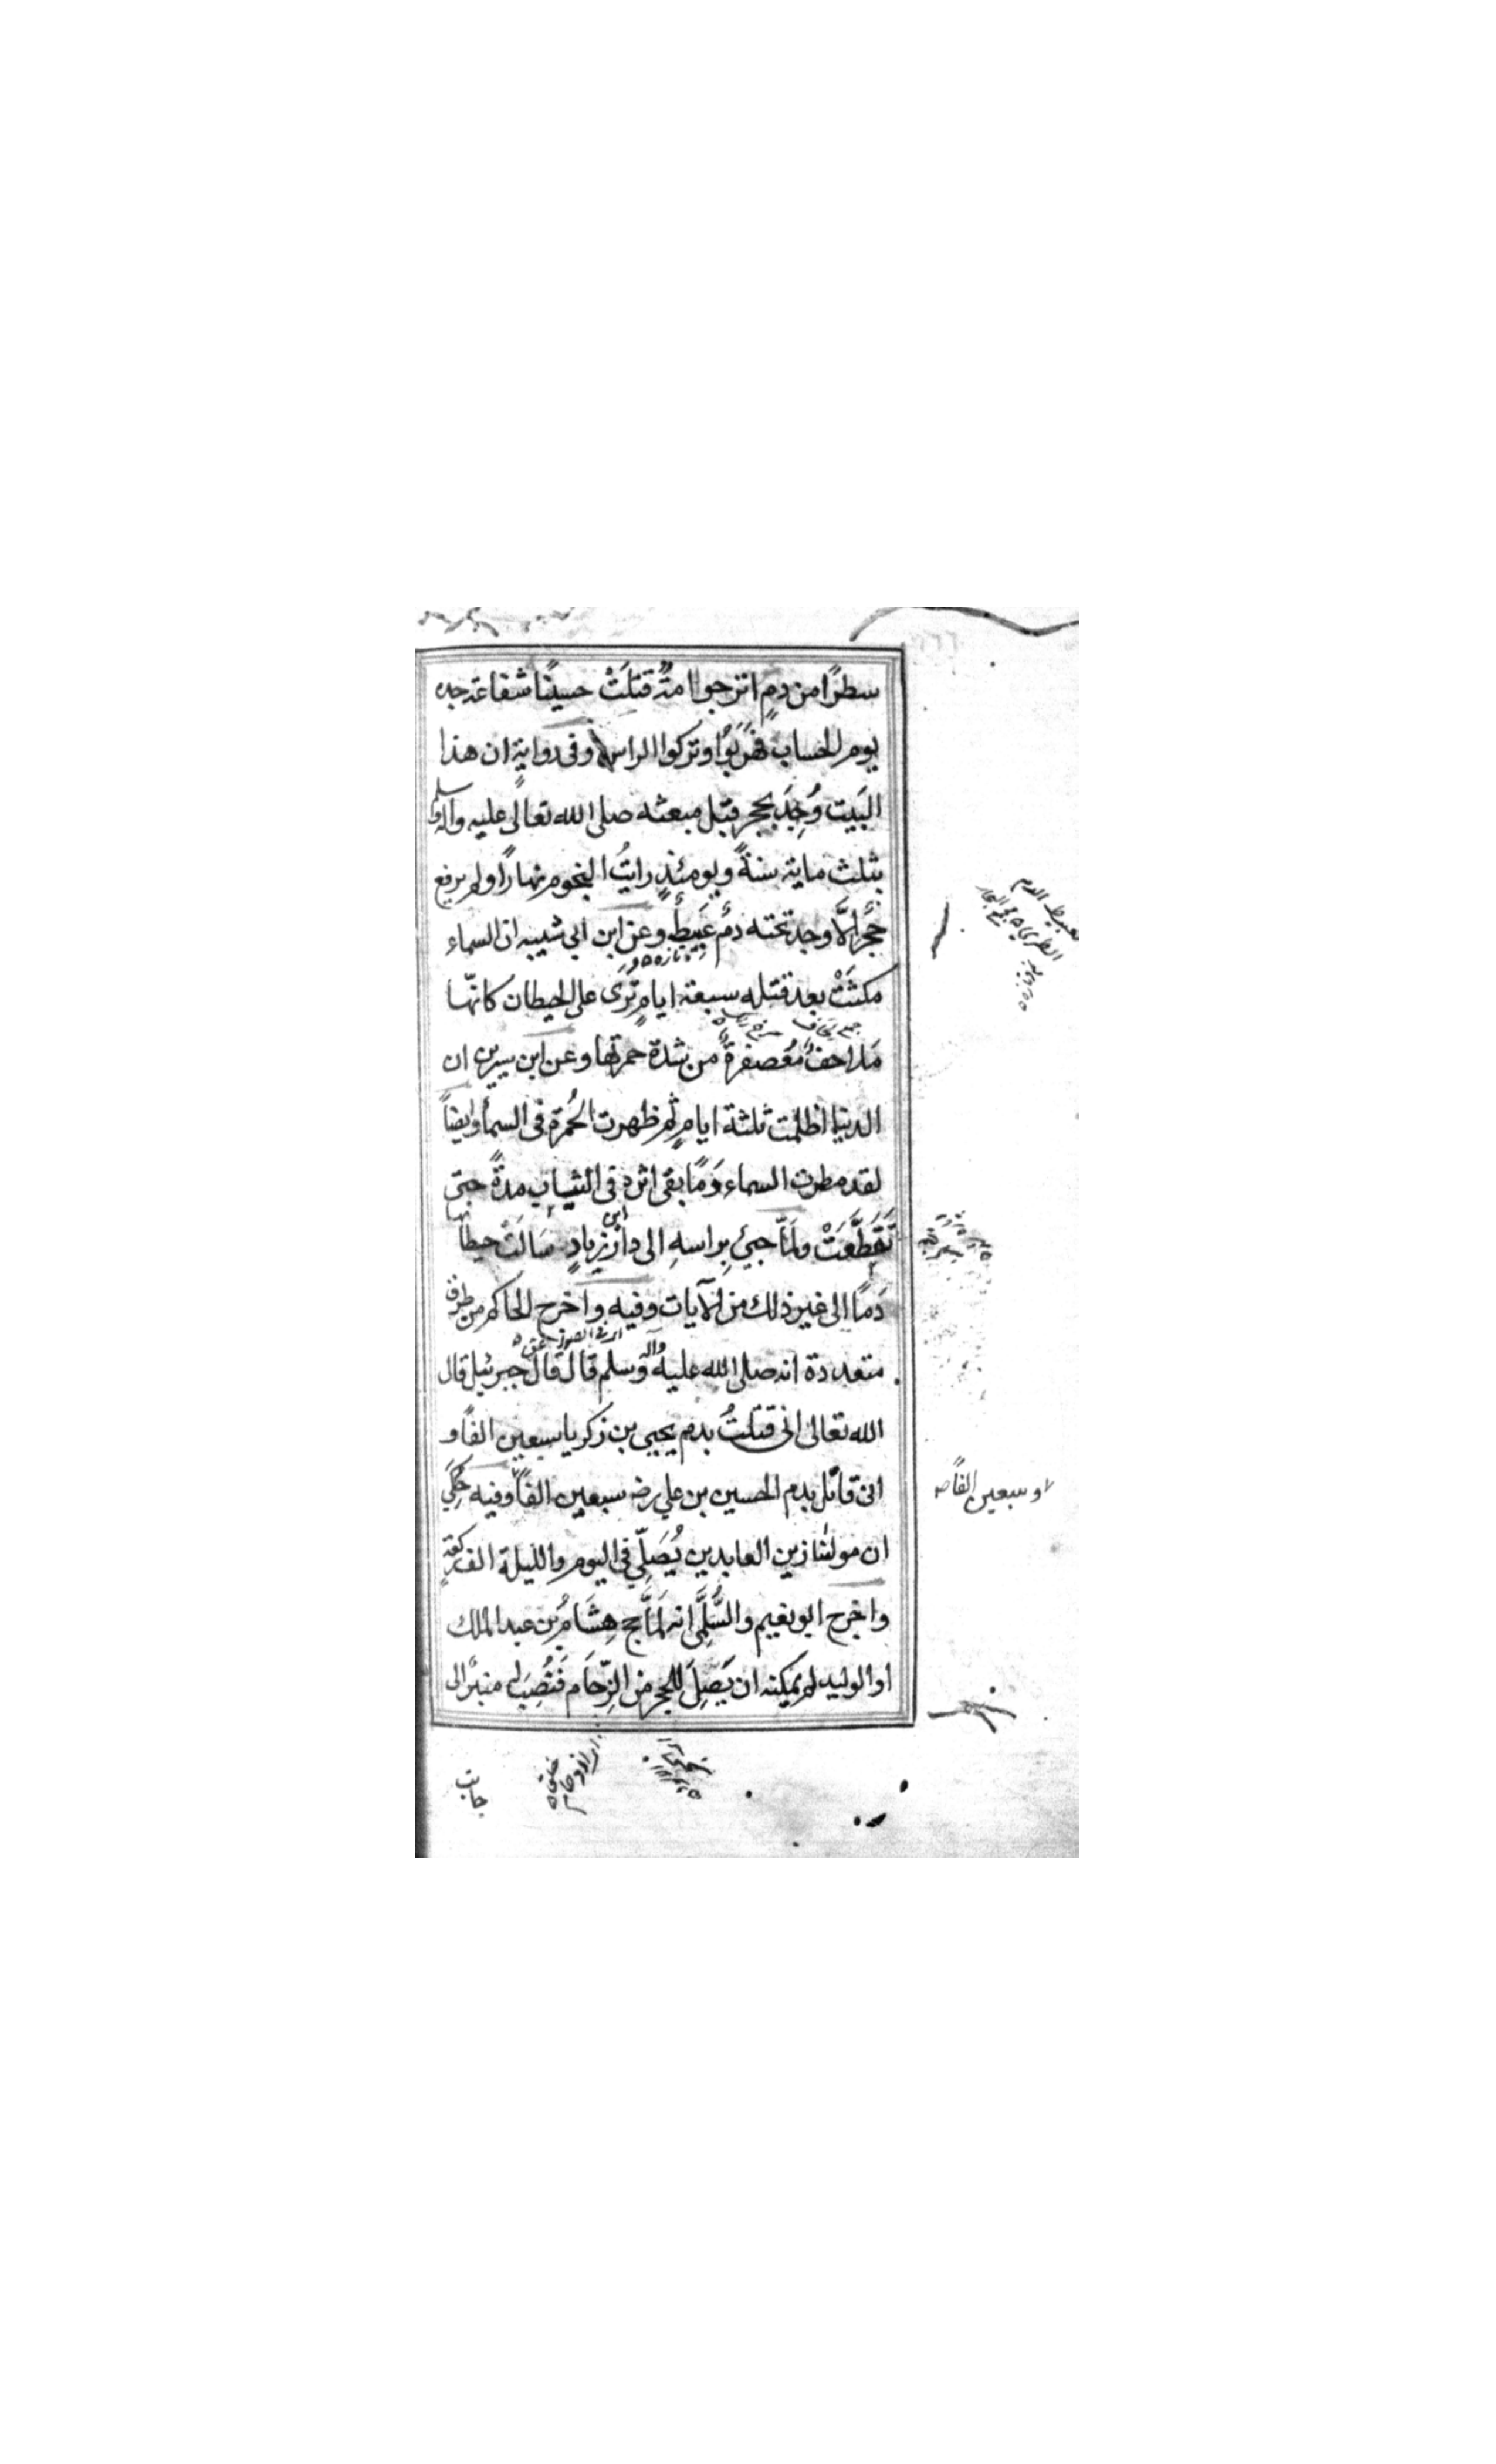 سطرًا من دمٍ اترجوا امةٌ قتلَتْ حسينًا شفاعة جده
يوم الحساب فهَرَبُوْا وتركوا الراس وفى رواية ان هذا
البَيت وُجِدَ بحجر قبل مبعثه صلى الله تعالى عليه وآله وسلم
بثلث ماية سنةً ويومئذٍ رايتُ النجوم نهارًا ولم يرفع
حجَرٌ الَّا وجد تحته دمٌ عَبِيطٌ وعن ابن ابى شيبه ان السماء
تازه
مكثَتْ بعد قتله سبعة ايامٍ تُرَى على الحيطان كانّها
جمع لحاف سرخ رنگ
مَلاحفُ مُعَصفرةٌ من شدة حمرتها وعن ابن سيرين ان
الدنيا اظلمت ثلثة ايامٍ ثم ظهرت الحُمرة فى السماء وايضاً
لقد مطرت السماء دَمًا بقى اثره فى الثياب مدةً حتى
تَقَطَّعَتْ ولمَّا جيئ بِراسهِ الى دار ابن زيادٍ سَالَتْ حيطانها
دَمًا الى غير ذلك من الآيات وفيه واخرج الحاكم من طرف
اى فى الصواعق
متعددة انه صلى الله عليه وآله وسلم قال قال جبرئيل قال
الله تعالى انى قتلتُ بدم يحيى بن زكريا سبعين الفًا و
انى قاتل بدم الحسين بن على رضـ سبعين الفًا وفيه حُكِيَ
وسبعين الفًا صح
ان مولٰنا زين العابدين يُصَلِّي فى اليوم والليلة الف ركعةٍ
واخرج ابو نعيم والسُّلَمَّى انه لمَّا حج هِشَامُ بن عبد الملك
او الوليد لم يمكنه ان يَصِلَ للحجر من الزِّحَام فَنُصِبَ له منبرًا الى
جانب